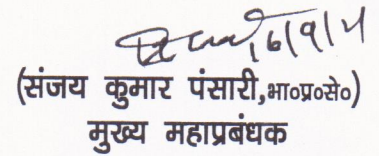 16/9/11
(संजय कुमार पंसारी,भा०प्र०से०)
मुख्य महाप्रबंधक